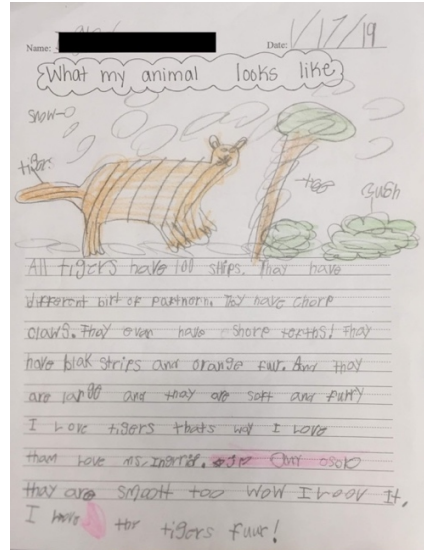 Name:
Date: 1/17/19
What my animal looks like
snow
tigers
tree
Bush
All tigers have 100 strips. Thay have
different birt of partnorn. Thy have chorp
claws. Thay even have shorp teeths! Thay
have blak strips and orange fur. And thay
are large and thay are soft and furry
I Love tigers thats way I Love
tham Love ms.
thay are smooth too wow I Loov It.
I the tigers fuur!